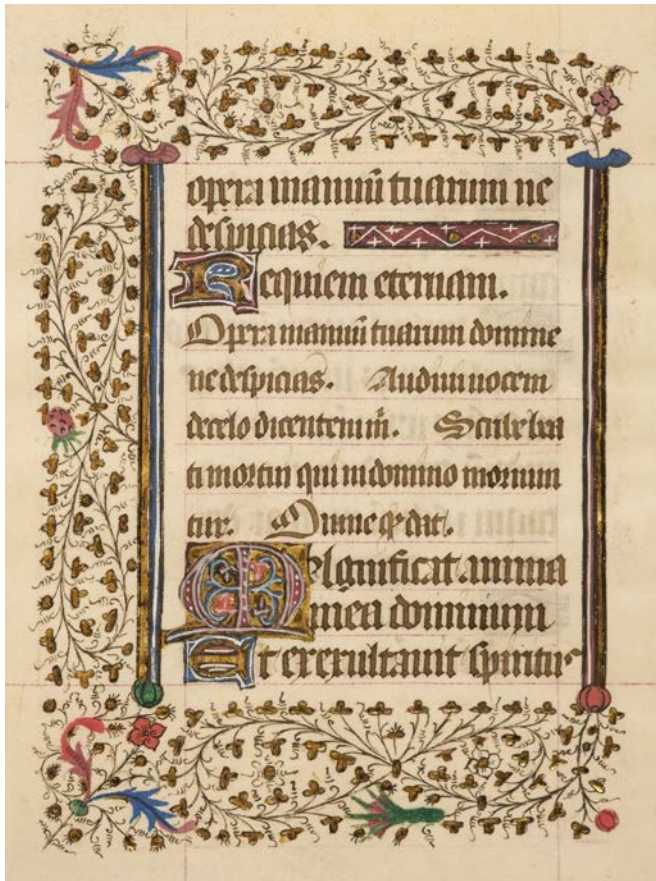 opera manuū tuarum ne
despicias.
Requiem eternam.
Opera manuū tuarum domine
ne despicias. Audiui uocem
de celo dicentem m̄. Scribe bea
ti mortui qui in domino moriun
tur. Omne qđ dat.
Magnificat anima
mea dominum
Et exexultauit spiritus